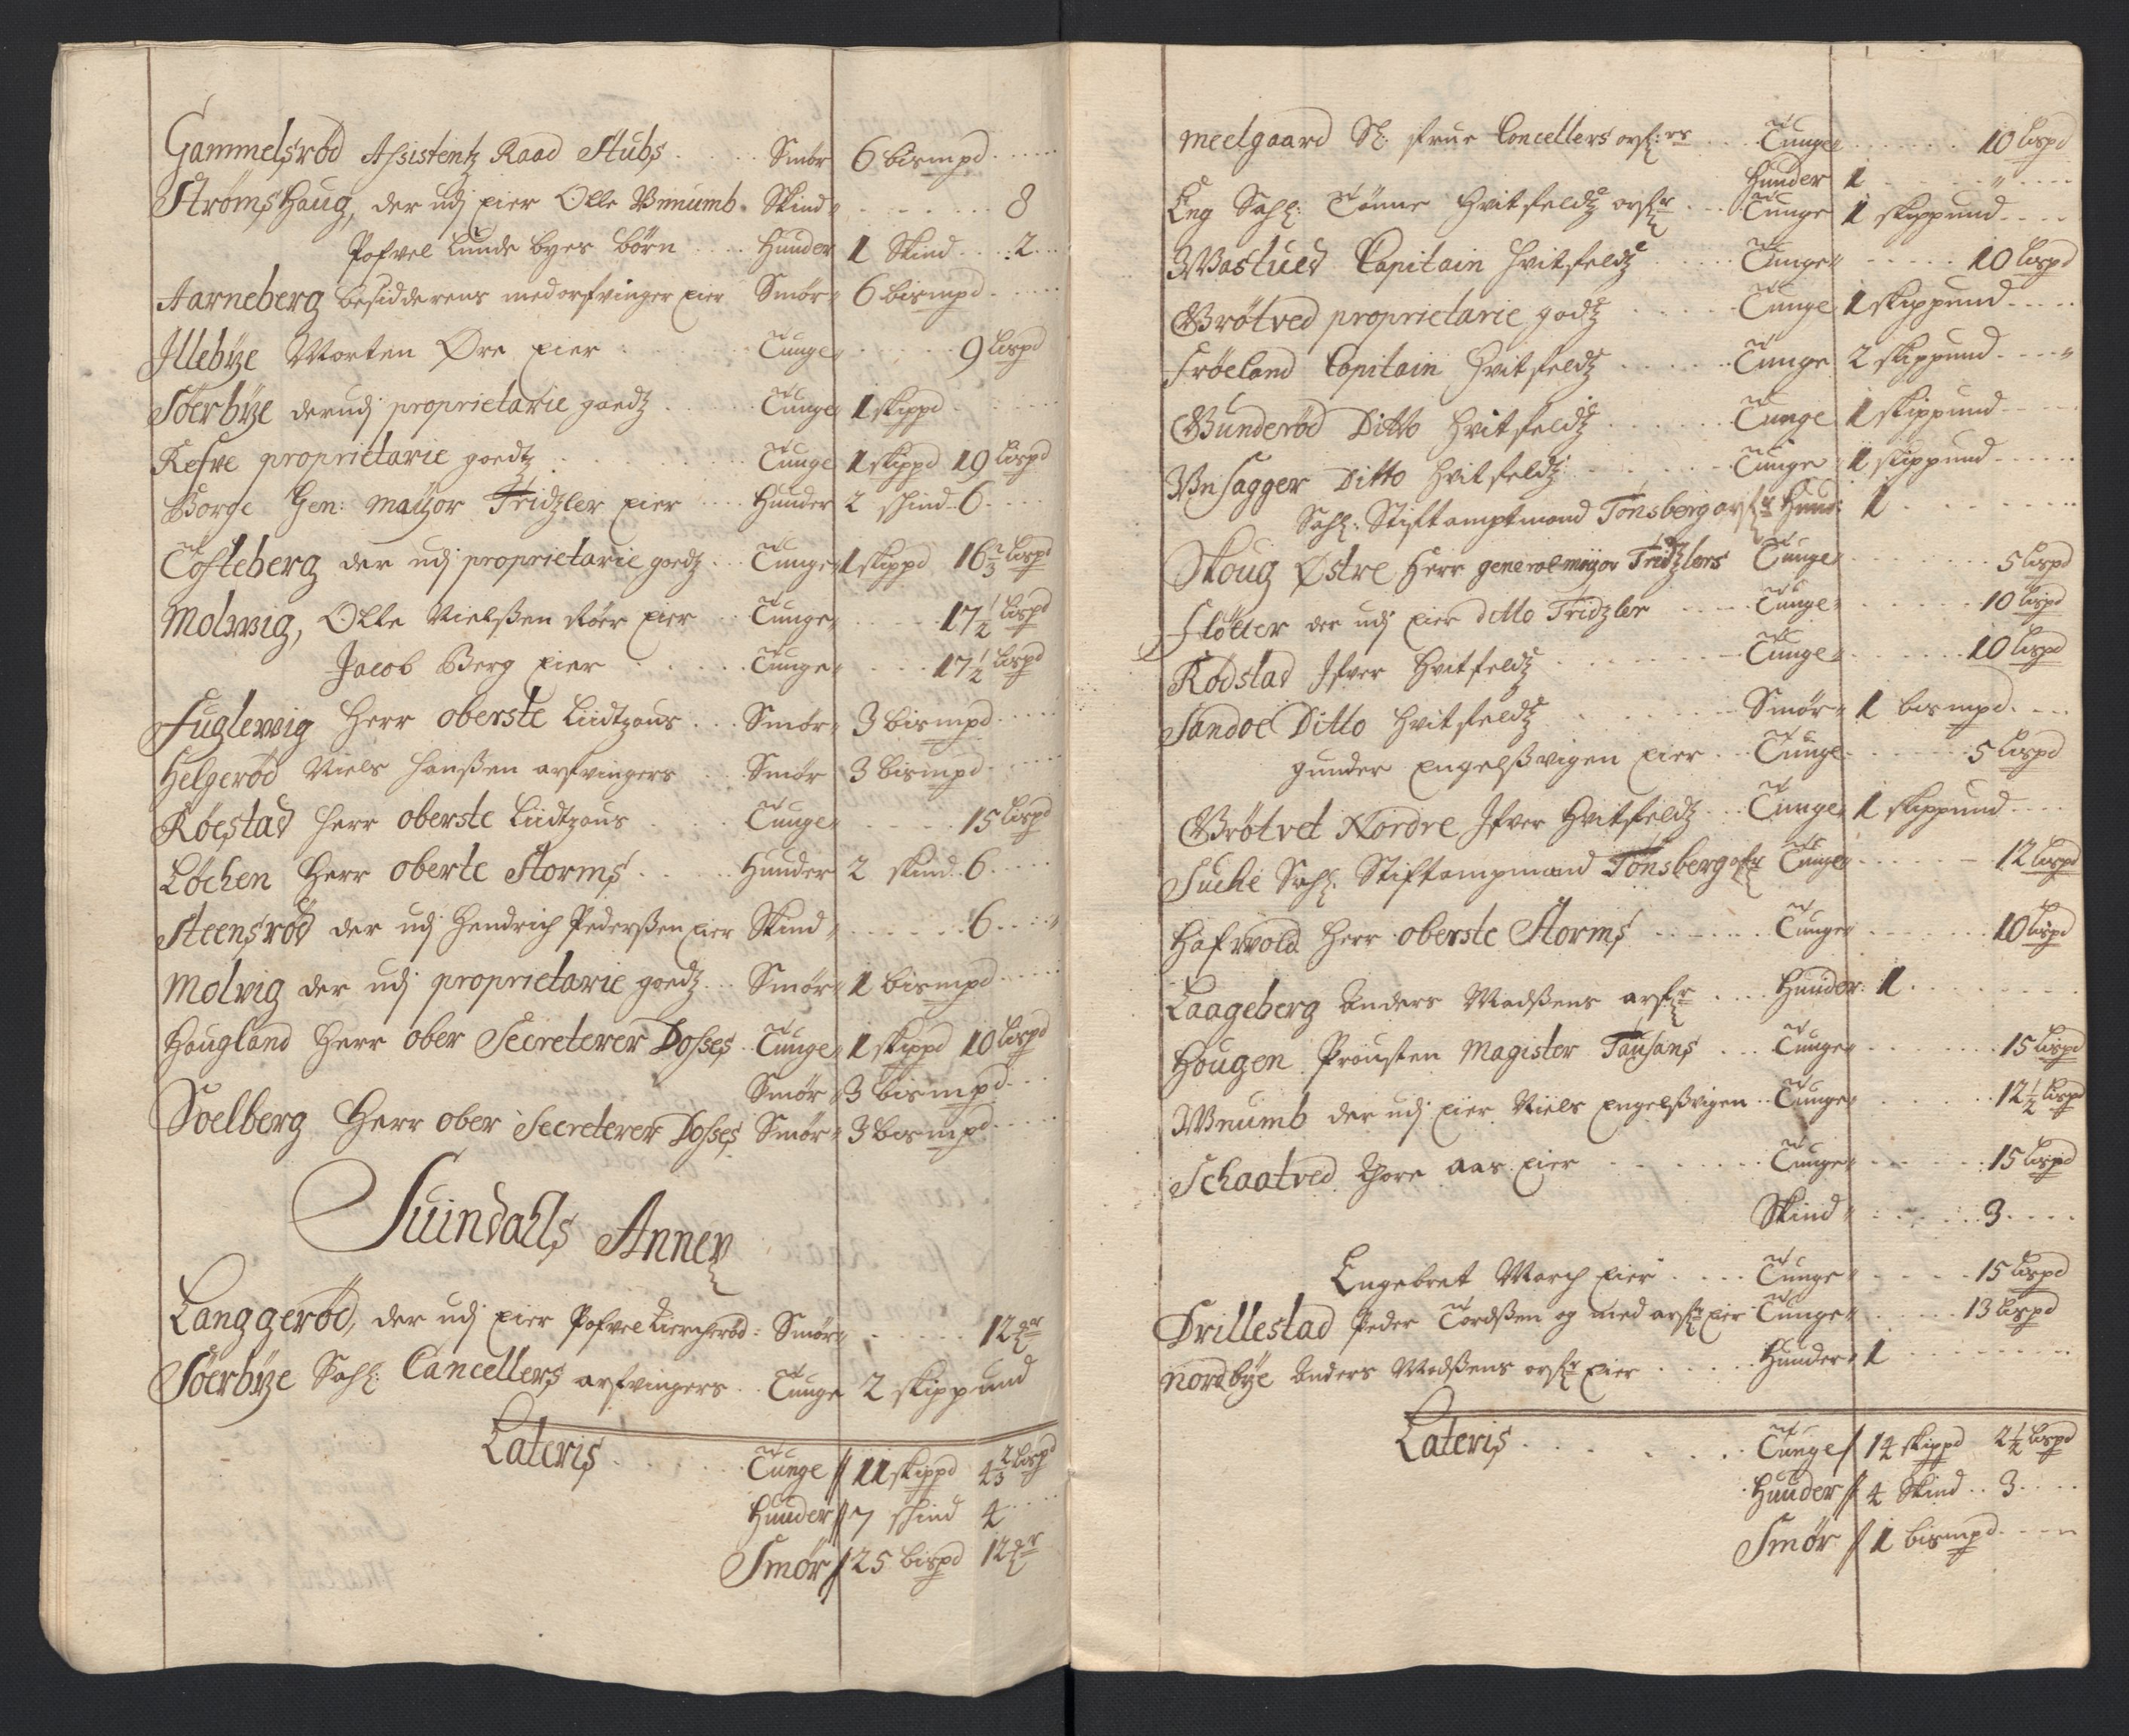 Gammelsrød Assistentz Raad Stubs . . . . Smør 6 bismpd . . . .
StrømsHaug, der udj Eier Olle Vnnumb . Skind „ . . . . . . 8
Pofvel Lunde byes børn . . . . Hunder 1 Skind . . . 2 . .
Aarneberg besidderens medarfvinger Eier Smør „ 6 bismpd . . . .
Illebÿe Morten Øre Eier . . . . . . Tunge „ . . . . 9 Lispd
Söerbÿe derudj proprietarie goedtz . . . . Tunge „ 1 skippd . . . .
Refve proprietarie goedtz . . . . . . Tunge 1 skippd 19 Lispd
Borge Gen: Maÿor Tridzler Eier . . . Hunder 2 schind 6 . . .
Tofteberg der udj proprietarie goedtz . . Tunge „ 1 skippd 16 2/3 Lispd
Molwig, Olle Nielßen støer Eier . . Tunge „ . . . . 17 1/2 Lispd
Jacob Berg Eier . . . . . Tunge „ . . . 17 1/2 Lispd
Fuglewig Herr oberste Lüdtzous . . . Smør „ 3 bismpd . . . .
Helgerød Niels Hanßen arfvingers . . Smør 3 bismpd . . . .
Röestad Herr oberste Lüdtzous . . . . Tunge „ . . . . 15 Lispd
Löchen Herr oberte Storms . . . . Hunder 2 skind 6 . . . .
Steensrød der udj Hendrich Pederßen Eier Skind „ . . . . . 6 . . . „
Molvig der udj proprietarie goedz . . Smør „ 1 bismpd . . . .
Hougland Herr ober Secreterer Dosses . . Tunge „ 1 skippd 10 Lispd
Smør „ 3 bismpd . . .
Soelberg Herr ober Secreterer Dosses Smør „ 3 bismpd . . . .
Suindahls Annex
Langgerød, der udj Eier Pofvel Kiercherød : Smør „ . . . . 12 mr
Söerbÿe Sahl: Cancellers arfvingers . . Tunge 2 skippund
Lateris . . . . . Tunge // 11 skippd 4 2/3 Lispd
Hunder // 7 schind 4 . . . .
Smør // 25 bispd 12 mr
Meelgaard Sl: frue Concellers arf:rs . . . Tunge „ . . . . . 10 Lispd
Hunder 1 . . . . „ . . . .
Eng Sahl: Tönne Hvitfeldtz arfr . . . Tunge 1 skippund . . . .
Wastued Capitain Hvitfeldtz . . . . Tunge „ . . . . . 10 Lispd
Grötved proprietarie godtz . . . . . Tunge 1 skippund . . . . .
Fröeland Capitain Hvitfeldtz . . . . . Tunge 2 skippund . . . . „
Gunderød Ditto Hvitfeldtz . . . . . Tunge 1 skippund . . . .
Unsagger Ditto Hvitfeldtz . . . . . . Tunge „ 1 skippund . . . . .
Sahl: Stiftamptmand Tønsberg arfr Hund: 1 . . . . . . .
Skoug Østre Herr generalmajor Tridzlers Tunge „ . . . . . 5 Lispd
Flötter der udj Eier ditto Tridzler . . . Tunge „ . . . . . 10 Lispd
Rødstad Ifver Hvitfeldtz . . . . . . . Tunge „ . . . . . 10 Lispd
Sandöe Ditto Hvitfeldtz . . . . . . Smør „ 1 bismpd . . .
gunder Engelßvigen Eier . . Tunge . . . . . 5 Lispd
Grötvet Nordre Ifver Hvitfeldtz . . . Tunge „ 1 skippund . . .
Suche Sahl: Stiftampmand Tønsberg afr Tunge „ . . . . . 12 Lispd
Hafrvold Herr oberste Storms . . . . . . Tunge „ . . . . . 10 Lispd
Laageberg Anders Madßens arfr . . . Hunder : 1 . . . . . . . .
Hougen Prousten Magister Tausans . . . Tunge „ . . . . . . 15 Lispd
Wnumb der udj Eier Niels Engelßvigen . . Tunge „ . . . . . 12 1/2 Lispd
Schaatved Thore Aas Eier . . . . . . . Tunge „ . . . . . 15 Lispd
Skind „ . . . . . 3 . . . .
Engebret March Eier . . . . Tunge „ . . . . 15 Lispd
Drillestad Peder Tordßen og med arfr Eier Tunge „ . . . . 13 Lispd
Nordbÿe Anders Madßens arfr Eier . . . . . Hunder „ 1 . . . . . . . .
Lateris . . . . . . . Tunge / 14 skippd 2 1/2 Lispd
Hunder // 4 Skind . . 3 . . . .
Smør // 1 bismpd . . . .